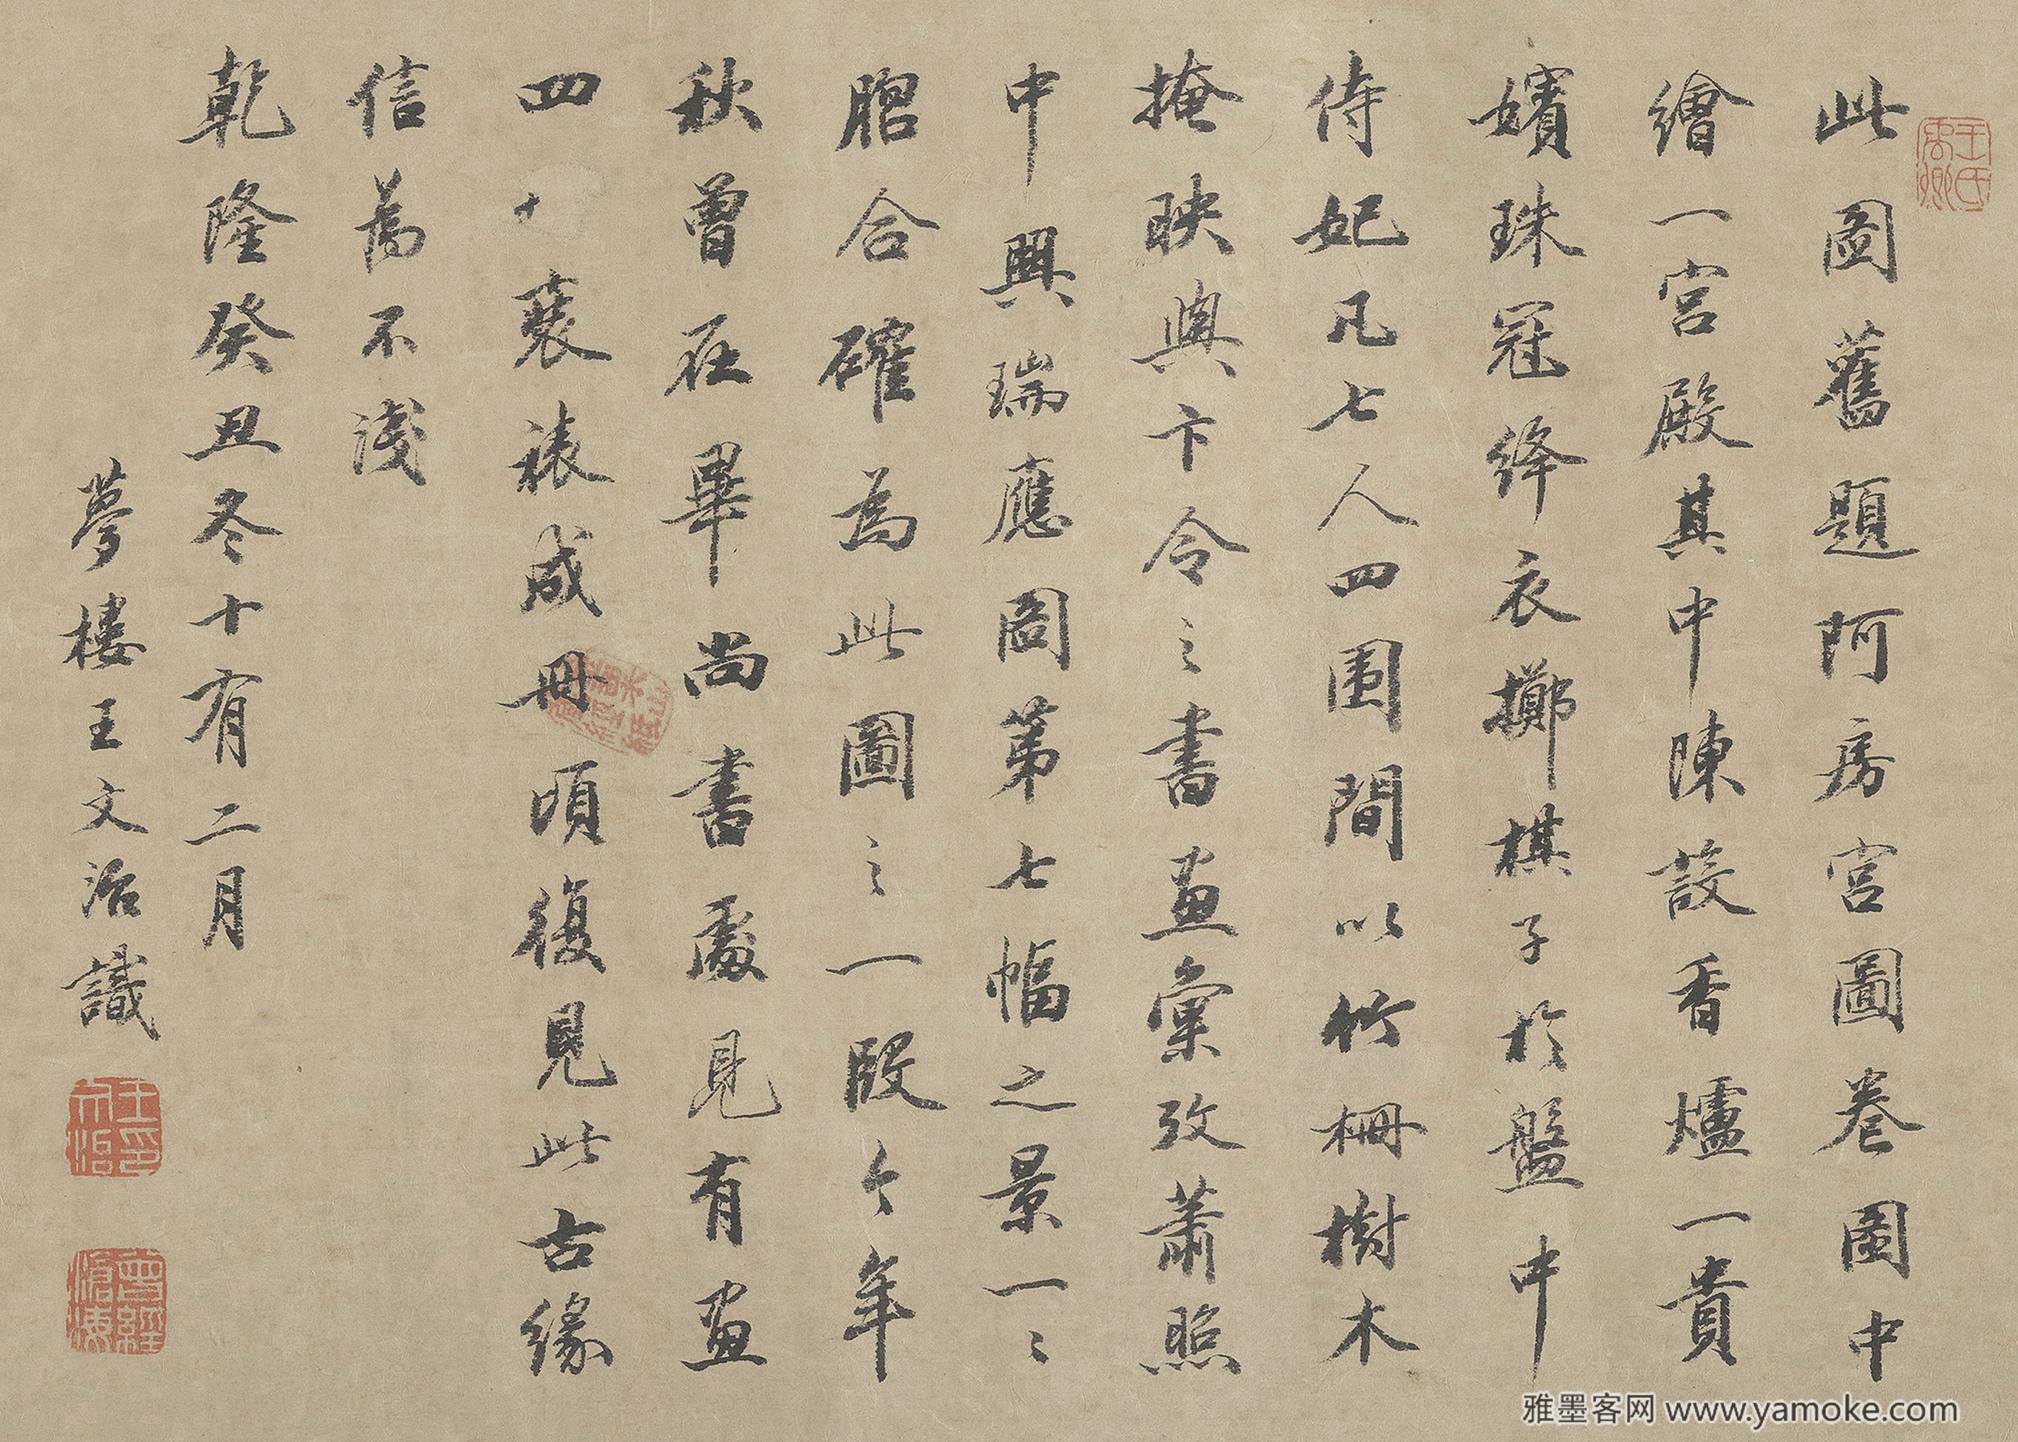 此圖舊題阿房宮圖卷圖中
繪一宮殿其中陳設香爐一貴
嬪珠冠絳衣擲棋子於盤中
侍妃凡七人四围間以竹柵樹木
掩映與卞令之書畫彙攷蕭照
中興瑞應圖第七幅之景一〻
脗合確為此圖之一段今年
秋曾在畢尚書處見有畫
四十葉裱成冊頃復見此古緣
信為不淺
乾隆癸丑冬十有二月
夢樓王文治識
王文治印
曾經滄海
雅墨客网 www.yamoke.com